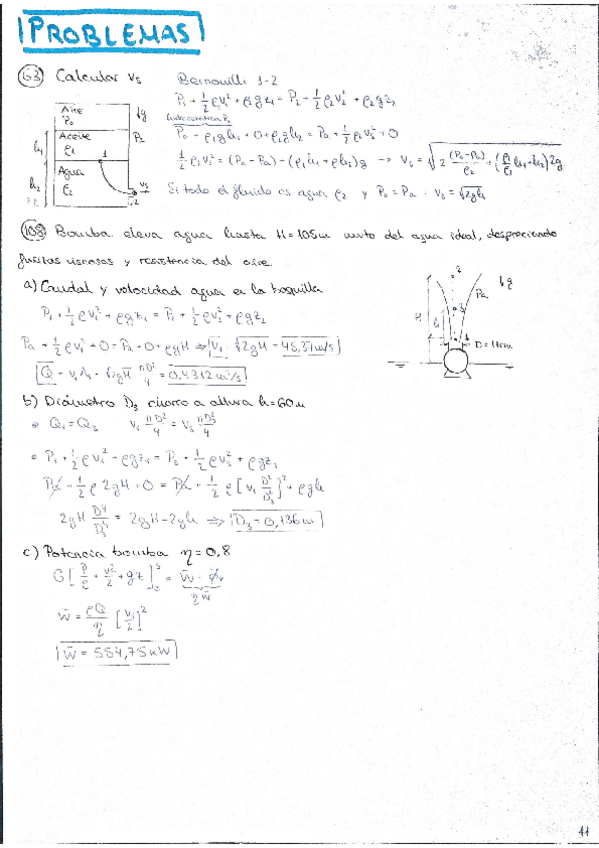 PROBLEMAS
63 Calcular v₅
Bernouilli 1-2
P₁ + 1/2 ρv₁² + ρ₂gz₁ = P₂ + 1/2 ρ₂v₂² + ρ₂gz₂
P₀ + ρ₁gh₁ + 0 + ρ₂gh₂ = Pa + 1/2 ρv₅² + 0
1/2 ρv₅² = (Pa - P₀) - (ρ₁h₁ + ρh₂)g → v₅ = √2 (P₀-Pa)/ρ₂ + (ρ₁/ρ₂ h₁ + h₂)2g
Si todo el fluido es agua ρ₂ y P₀ = Pa v₅ = √2gh
Aire
P₀
g
Aceite
ρ₁
Pa
h₁
Agua
ρ₂
1
h₂
v₅
2
108 Bomba eleva agua hasta H=105m del agua ideal, despreciando
viscosas y resistencia del aire.
a) Caudal y velocidad agua en la boquilla
P₁ + 1/2 ρv₁² + ρgz₁ = P₂ + 1/2 ρv₂² + ρgz₂
Pa + 1/2 ρv₁² + 0 = Pa + 0 + ρgH ⇒ v₁ = √2gH = 45,37m/s
Q = v₁A₁ = √2gH πD²/4 = 0,4312 m³/s
2
g
Pa
H
3
h
D=11cm
b) Diámetro D₃ chorro a altura h=60m
• Q₁=Q₃ v₁ πD²/4 = v₃ πD₃²/4
• P₁ + 1/2 ρv₁² + ρgz₁ = P₃ + 1/2 ρv₃² + ρgz₃
Pa + 1/2 ρ 2gH + 0 = Pa + 1/2 ρ [v₁ D²/D₃²]² + ρgh
2gH D⁴/D₃⁴ = 2gH - 2gh ⇒ D₃ = 0,136m
c) Potencia bomba η=0,8
G[P/ρ + v²/2 + gz] = Ẇ
ηẆ
Ẇ = ρQ/η [v₁/2]²
Ẇ = 554,75kW
11